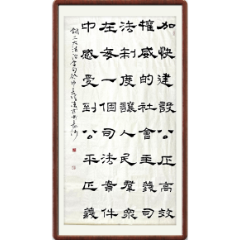 加快建設公正高效
權威的社會主義司
法制度讓人民群眾
在每一個司法案件
中感受到公平正義